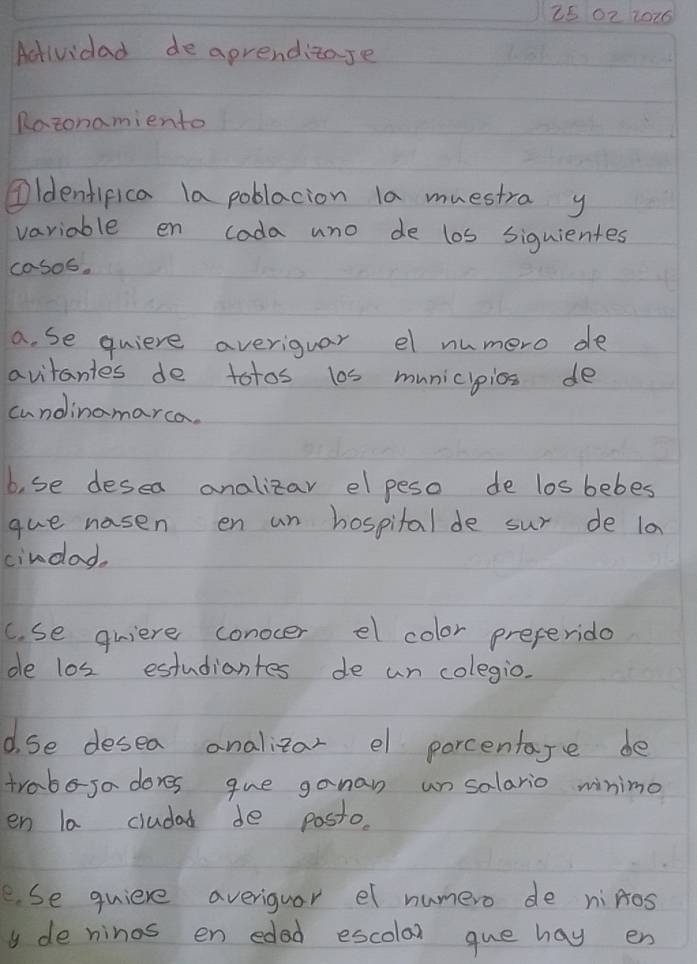 25 02 2026
Actividad de aprendizaje
Razonamiento
① Identifica la poblacion la muestra y
variable en cada uno de los siguientes
casos.
a. Se quiere averiguar el numero de
avitantes de totos los municipios de
cundinamarca.
b. se desea analizar el peso de los bebes
que nasen en un hospital de sur de la
ciudad.
c. se quiere conocer el color preferido
de los estudiantes de un colegio.
d. se desea analizar el porcentaje de
trabajadores que ganan un salario minimo
en la ciudad de pasto.
e. Se quiere averiguar el numero de niños
y de ninos en edad escolar que hay en